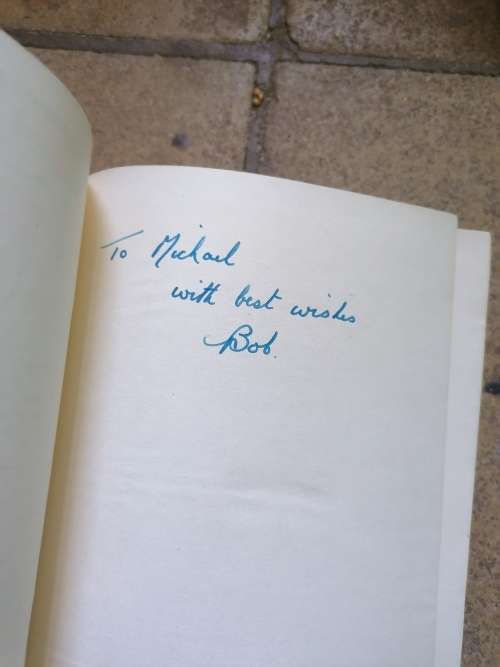 To Michael
with best wishes
Bob.